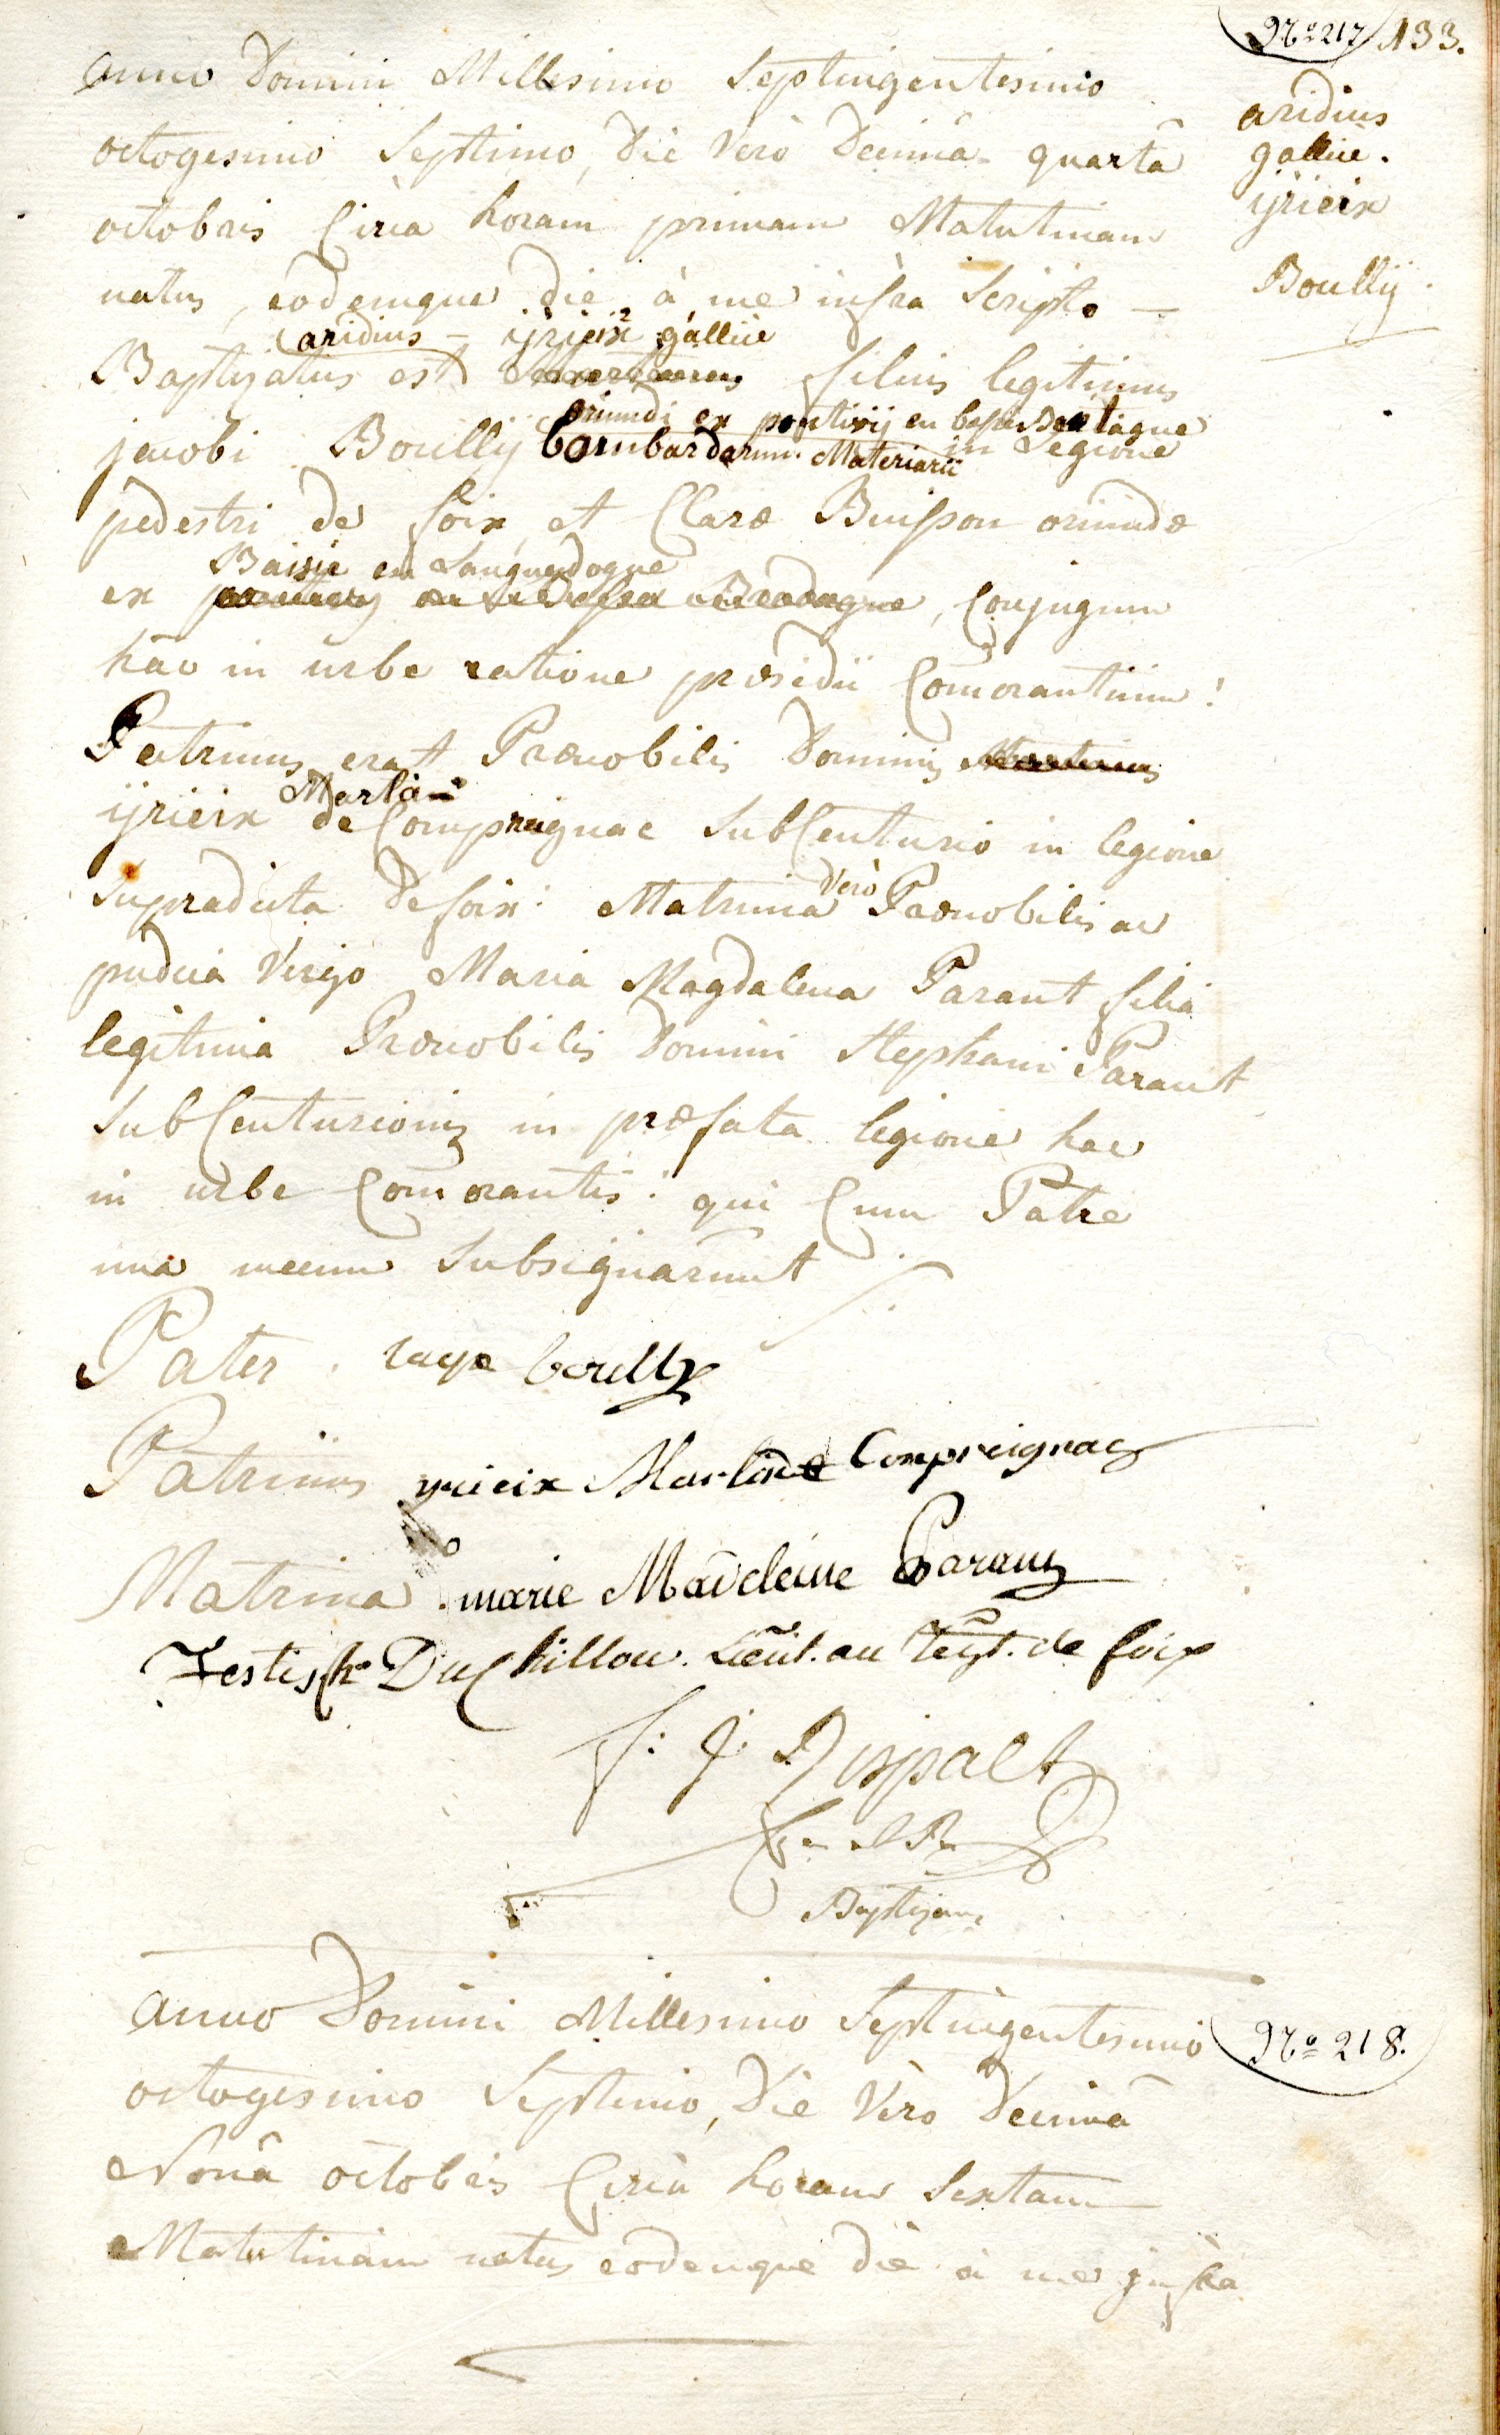 No 217 133.
aridius
gallice.
ijrieix
Boullij
anno Domini Millesimo Septingentesimo
octogesimo Septimo, Die Verò Decimâ quartâ
octobris Circa horam primam Matutinam
natus, eodemque die à me infra Scripto —
aridius — ijrieix gallice
Baptizatus est filius legitimus
oriundi ex pontivij en basse Bretagne
jacobi Boullij bombardarum Materiarii in Legione
pedestri de foix et Claræ Buisson oriundæ
Baisié en Languedogue
ex pontivy en Basse Bretagne, Conjugum
hâc in urbe ratione præsidii Com̄orantium:
Patrinus erat Prænobilis Dominus Martinus
Martin
ijrieix de Compreignac SubCenturio in legione
Supradicta De foix: Matrina Verò Prænobilis ac
pudica Virgo Maria Magdalena Parant filia
legitima Prænobilis Domini Stephani Parant
SubCenturionis in præfata legione hac
in urbe Com̄orantis: qui Cum Patre
una mecum Subsignarunt
Pater boully
Patrinus yrieix Martin de Compreignac
Matrina marie Madeleine Parant
Testis ch DuChillou. Lieut. au Regt. de foix
f: J: Dispalt
Baptizans
anno Domini Millesimo Septingentesimo
No 218.
octogesimo Septimo, Die Vero Decimâ
Nonâ octobris Circa horam Sextam
Matutinam natus eodemque die à me jnfra